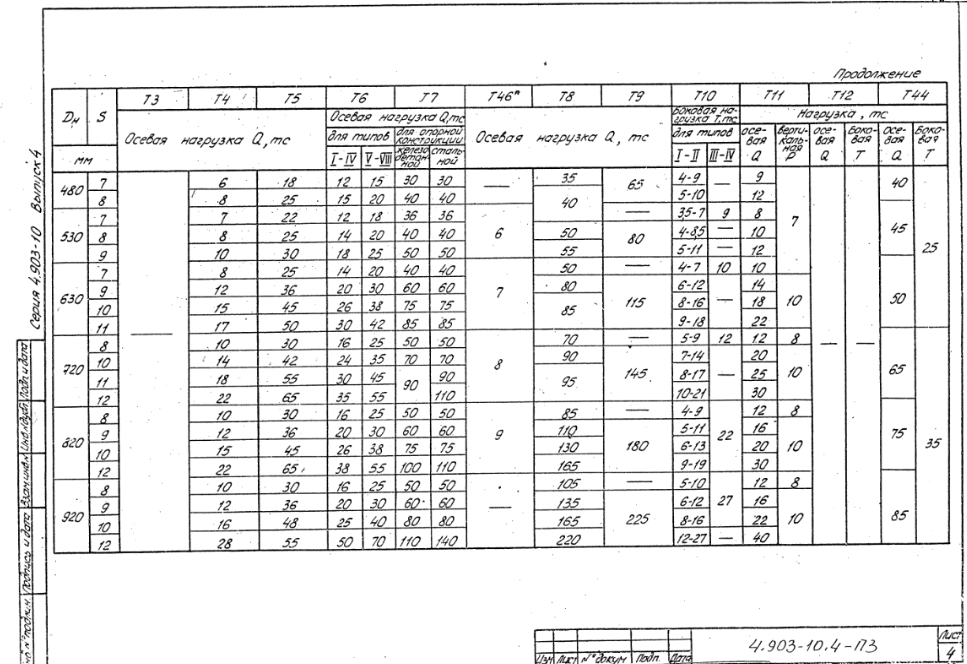 Продолжение
Dн S Т3 Т4 Т5 Т6 Т7 Т46* Т8 Т9 Т10 Т11 Т12 Т44
мм Осевая нагрузка Q, тс Осевая нагрузка Q, тс Осевая нагрузка Q, тс Боковая нагрузка Т, тс Нагрузка, тс
для типов для опорной конструкции для типов осевая Q вертикальная Р осевая Q боковая Т осевая Q боковая Т
I-IV V-VIII железобетонной стальной I-II III-IV
480 7 — 6 18 12 15 30 30 — 35 65 4-9 — 9 7 — — 40 25
8 8 25 15 20 40 40 40 5-10 12
530 7 7 22 12 18 36 36 6 — 3,5-7 9 8 45
8 8 25 14 20 40 40 50 80 4-8,5 — 10
9 10 30 18 25 50 50 55 5-11 12
630 7 8 25 14 20 40 40 7 50 — 4-7 10 10 50
9 12 36 20 30 60 60 80 115 6-12 — 14 10
10 15 45 26 38 75 75 85 8-16 18
11 17 50 30 42 85 85 9-18 22
720 8 10 30 16 25 50 50 8 70 — 5-9 12 12 8 65 35
10 14 42 24 35 70 70 90 145 7-14 — 20 10
11 18 55 30 45 90 90 95 8-17 25
12 22 65 35 55 110 10-21 30
820 8 10 30 16 25 50 50 9 85 — 4-9 22 12 8 75
9 12 36 20 30 60 60 110 180 5-11 16 10
10 15 45 26 38 75 75 130 6-13 20
12 22 65 38 55 100 110 165 9-19 30
920 8 10 30 16 25 50 50 — 105 — 5-10 27 12 8 85
9 12 36 20 30 60 60 135 225 6-12 16 10
10 16 48 25 40 80 80 165 8-16 22
12 28 55 50 70 110 140 220 12-27 — 40
Серия 4.903-10 Выпуск 4
Подп. и дата
Инв.№дубл.
Взам.инв.№
Подпись и дата
Изм Лист № докум Подп. Дата
4.903-10.4-П3
Лист
4